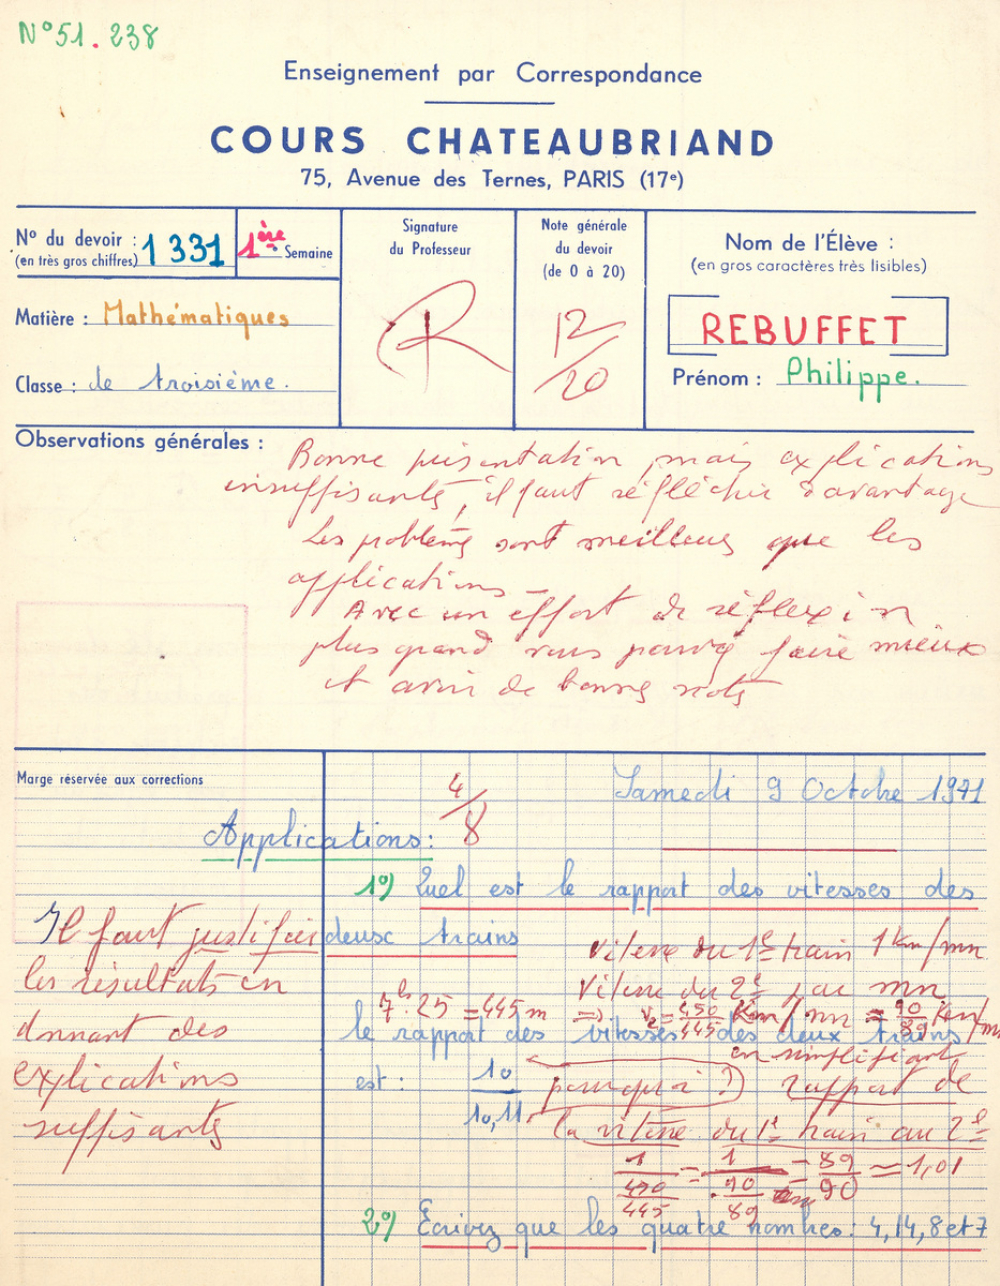 N° 51.238
Enseignement par Correspondance
COURS CHATEAUBRIAND
75, Avenue des Ternes, PARIS (17e)
N° du devoir : 1331
(en très gros chiffres)
1ère Semaine
Matière : Mathématiques
Classe : de troisième.
Signature
du Professeur
Note générale
du devoir
(de 0 à 20)
12/20
Nom de l'Élève :
(en gros caractères très lisibles)
REBUFFET
Prénom : Philippe.
Observations générales :
Bonne présentation mais explications
insuffisantes, il faut réfléchir davantage
Les problèmes sont meilleurs que les
applications -
Avec un effort de réflexion
plus grand vous pouvez faire mieux
et avoir de bonnes notes
Marge réservée aux corrections
4/8
Samedi 9 Octobre 1971
Applications :
1°) Quel est le rapport des vitesses des
deux trains
Il faut justifier
les résultats en
donnant des
explications
suffisantes
Vitesse du 1er train 1 Km/mn
Vitesse du 2e par mn
7h 25 = 445 m => v2 = 450/445 Km/mn = 90/89 Km/mn
le rapport des vitesses des deux trains
en simplifiant
est : 10/10,11 pourquoi ?) rapport de
la vitesse du 1er train au 2e
1/(450/445) = 1/(90/89) = 89/90 ≃ 1,01
2°) Ecrivez que les quatre nombres : 4, 14, 8 et 7